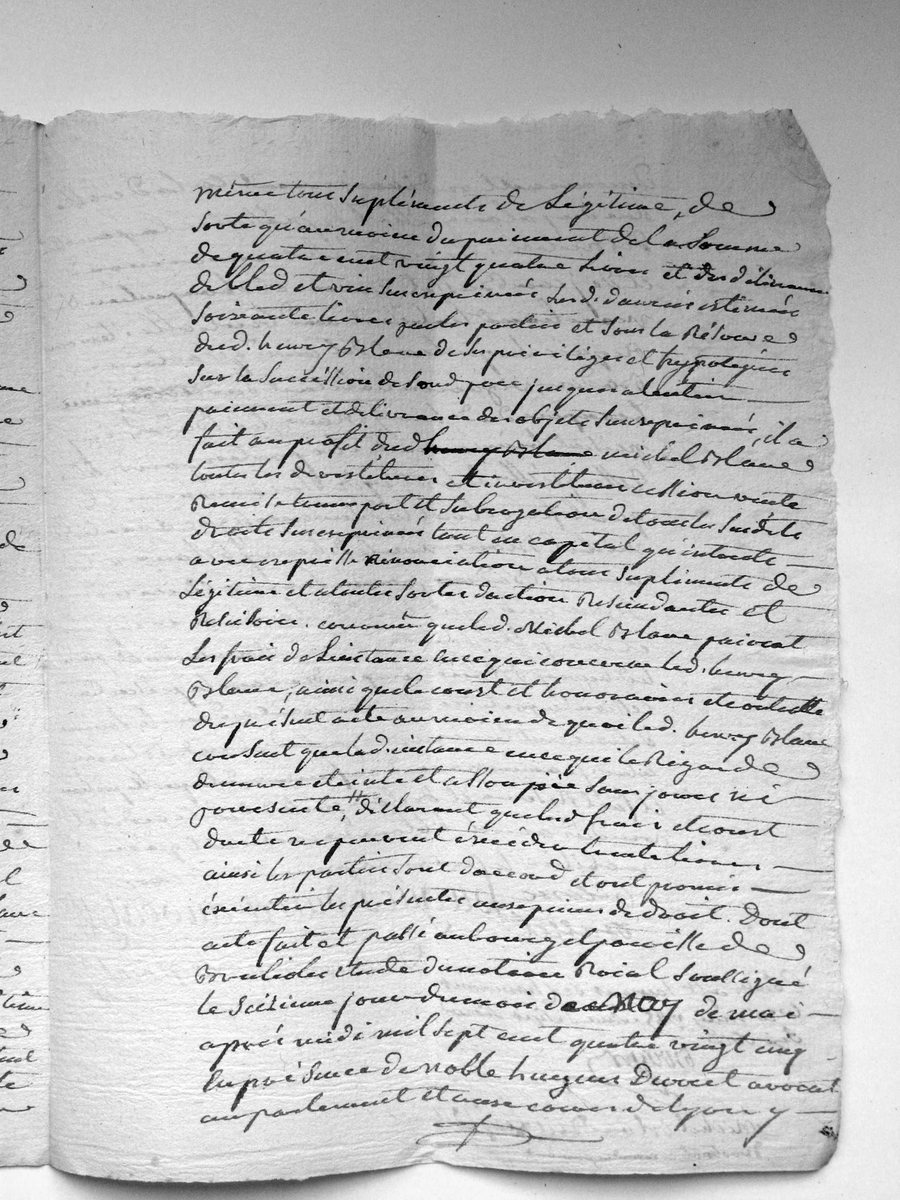 même tous suplements de Légitime, de
sorte qu'aumoien du paiement de la somme
de quatre cent vingt quatre livres et des délivrances
de bled et vin susexprimés led. d. dauries estimés
soixante livres par les parties et sous la Réserve
dud. henry Blanc de ses privilèges et hypotèques
sur la succession de son d. pere jusques alentier
paiement et delivrance des objets susexprimés, il a
fait au profit dud. michel Blanc
toutes les devestitures et investitures cession vente
Remise transport et subrogation de tous les susdits
droits susexprimés tant en capital qu'interets
avec expresse rénonciation a tous suplements de
Légitime et a toutes sortes daction Rescindantes et
Rescisoire. convenu que led. Michel Blanc paieroit
Les frais de Linstance en ce qui concerne led. henry
Blanc, ainsi que le coust et honoraires et controlle
du présent acte au moien de quoi led. henry Blanc
consent que lad. instance en ce qui le Régarde
demeure eteinte et assoupie sans jamais ni
poursuite, déclarant que lesd. frais et coust
dacte ne peuvent éxcéder trente livres
ainsi les parties sont daccord et ont promis
éxécuter les présentes aux peines de droit. Dont
acte fait et passé au bourg et paroisse de
étude du notaire Roial soussigné
le seizieme jour du mois de mai
après midi mil sept cent quatre vingt cinq
En présence de Noble hugues Duvoet avocat
en parlement et aux cours de Lyon